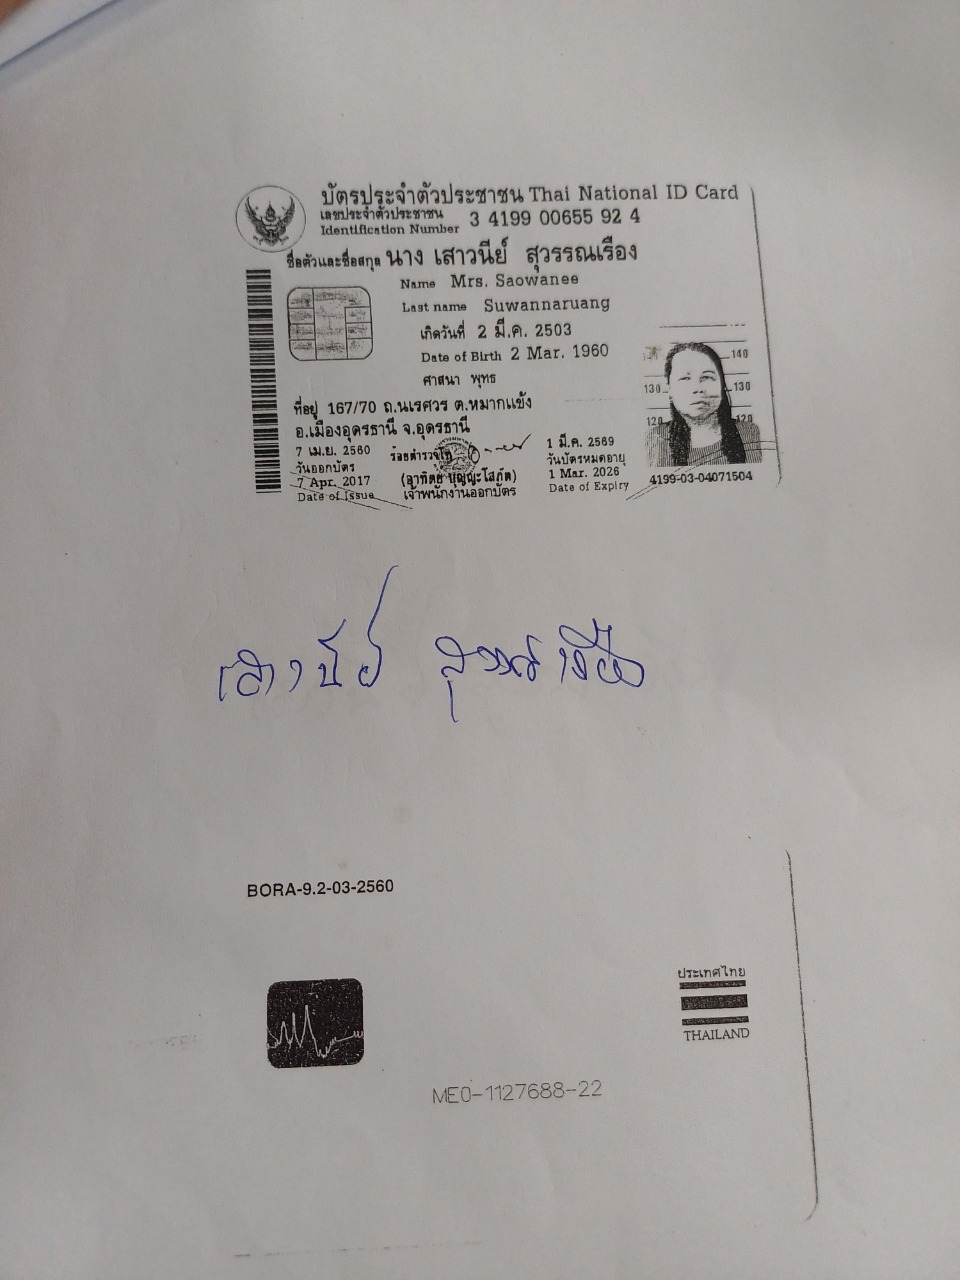 บัตรประจำตัวประชาชน Thai National ID Card
เลขประจำตัวประชาชน
Identification Number 3 4199 00655 92 4
ชื่อตัวและชื่อสกุล นาง เสาวนีย์ สุวรรณเรือง
Name Mrs. Saowanee
Last name Suwannaruang
เกิดวันที่ 2 มี.ค. 2503
Date of Birth 2 Mar. 1960
ศาสนา พุทธ
ที่อยู่ 167/70 ถ.นเรศวร ต.หมากแข้ง
อ.เมืองอุดรธานี จ.อุดรธานี
7 เม.ย. 2560
วันออกบัตร
7 Apr. 2017
Date of Issue
ร้อยตำรวจโท
(อาทิตย์ บุญญะโสภัต)
เจ้าพนักงานออกบัตร
1 มี.ค. 2569
วันบัตรหมดอายุ
1 Mar. 2026
Date of Expiry
140
130 130
120 120
4199-03-04071504
เสาวนีย์ สุวรรณเรือง
BORA-9.2-03-2560
ประเทศไทย
THAILAND
ME0-1127688-22